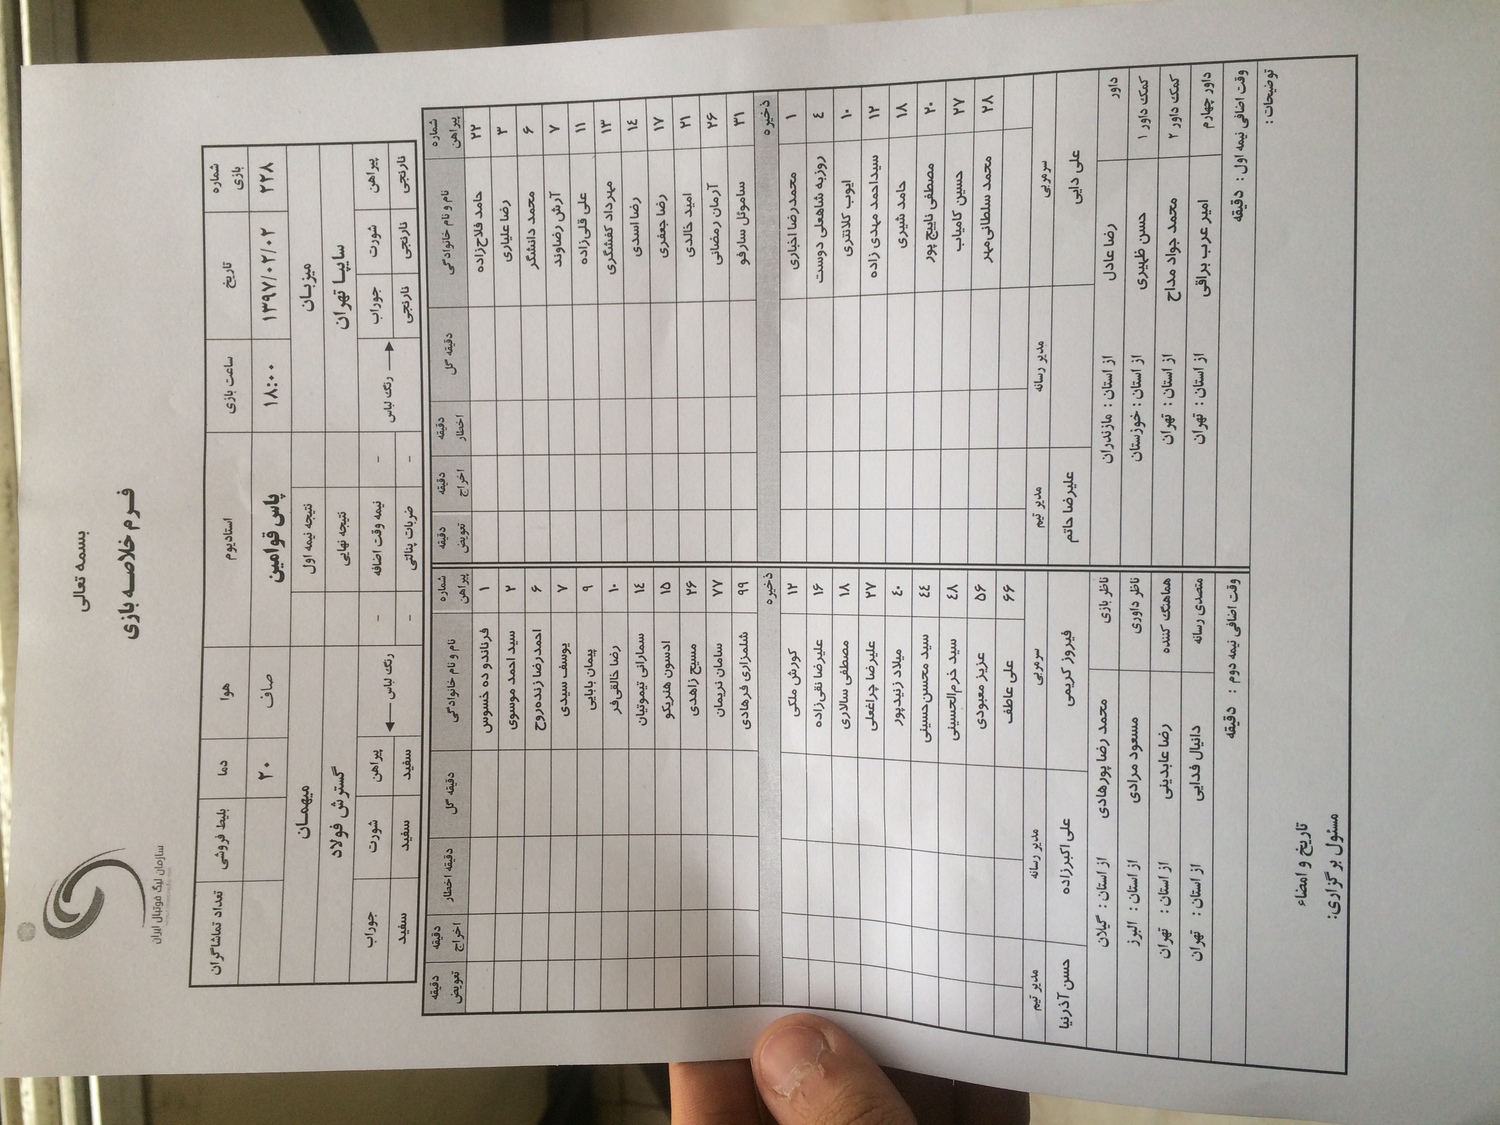 بسمه تعالی
فرم خلاصه بازی
سازمان لیگ فوتبال ایران
شماره بازی تاریخ ساعت بازی استادیوم هوا دما بلیط فروشی تعداد تماشاگران
۲۲۸ ۱۳۹۷/۰۲/۰۲ ۱۸:۰۰ پاس قوامین صاف ۲۰
میزبان نتیجه نیمه اول میهمان
سایپا تهران نتیجه نهایی گسترش فولاد
پیراهن شورت جوراب رنگ لباس - نیمه وقت اضافه - رنگ لباس پیراهن شورت جوراب
نارنجی نارنجی نارنجی - ضربات پنالتی - سفید سفید سفید
شماره پیراهن نام و نام خانوادگی دقیقه گل دقیقه اخطار دقیقه اخراج دقیقه تعویض شماره پیراهن نام و نام خانوادگی دقیقه گل دقیقه اخطار دقیقه اخراج دقیقه تعویض
۲۲ حامد فلاح‌زاده ۱ فرناندو ده خسوس
۳ رضا علیاری ۲ سید احمد موسوی
۶ محمد دانشگر ۶ احمدرضا زنده‌روح
۷ آرش رضاوند ۷ یوسف سیدی
۱۱ علی قلی‌زاده ۹ پیمان بابایی
۱۳ مهرداد کفشگری ۱۰ رضا خالقی‌فر
۱٤ رضا اسدی ۱٤ سمارانی تیموتیان
۱۷ رضا جعفری ۱۵ ادسون هنریکو
۲۱ امید خالدی ۲۶ مسیح زاهدی
۲۶ آرمان رمضانی ۷۷ سامان نریمان
۳۱ ساموئل سارفو ۹۹ شلمزاری فرهادی
ذخیره ذخیره
۱ محمدرضا اخباری ۱۲ کورش ملکی
٤ روزبه شاهعلی دوست ۱۶ علیرضا نقی‌زاده
۱۰ ایوب کلانتری ۱۸ مصطفی سالاری
۱۲ سیداحمد مهدی زاده ۲۷ علیرضا چراغعلی
۱۸ حامد شیری ٤۰ میلاد زنیدپور
۲۰ مصطفی نابیج پور ٤٤ سید محسن‌حسینی
۲۷ حسین کامیاب ٤۸ سید خرم‌الحسینی
۲۸ محمد سلطانی‌مهر ۵۶ عزیز معبودی
۶۶ علی عاطف
سرمربی مدیر رسانه مدیر تیم سرمربی مدیر رسانه مدیر تیم
علی دایی علیرضا حاتم فیروز کریمی علی اکبرزاده حسن آذرنیا
داور رضا عادل از استان : مازندران ناظر بازی محمد رضا پورهادی از استان : گیلان
کمک داور ۱ حسن ظهیری از استان : خوزستان ناظر داوری مسعود مرادی از استان : البرز
کمک داور ۲ محمد جواد مداح از استان : تهران هماهنگ کننده رضا عابدینی از استان : تهران
داور چهارم امیر عرب براقی از استان : تهران متصدی رسانه دانیال فدایی از استان : تهران
وقت اضافی نیمه اول : دقیقه وقت اضافی نیمه دوم : دقیقه
توضیحات :
تاریخ و امضاء
مسئول برگزاری: